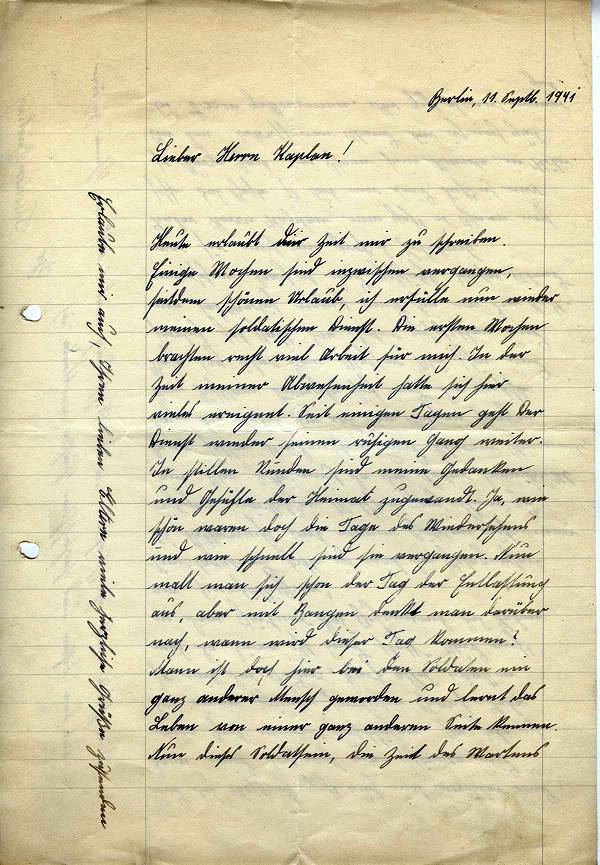 Berlin, 11. Septb. 1941
Lieber Herrn Kaplan!
Heute erlaubt die Zeit mir zu schreiben.
Einige Wochen sind inzwischen vergangen,
seitdem schönen Urlaub, ich erfülle nun wieder
meinen soldatischen Dienst. Die ersten Wochen
brachten recht viel Arbeit für mich. In der
Zeit meiner Abwesenheit hatte sich hier
vieles ereignet. Seit einigen Tagen geht der
Dienst wieder seinen ruhigen Gang weiter.
In stillen Stunden sind meine Gedanken
und Gefühle der Heimat zugewandt. Ja, wie
schön waren doch die Tage des Wiedersehens
und wie schnell sind sie vergangen. Nun
malt man sich schon der Tag der Entlassung
aus, aber mit Bangen denkt man darüber
nach, wann wird dieser Tag kommen?
Mann ist doch hier bei den Soldaten ein
ganz anderer Mensch geworden und lernt das
Leben von einer ganz anderen Seite kennen.
Nun dieses Soldatsein, die Zeit des Wartens
Erlaube mir auch, Ihren lieben Eltern viele herzliche Grüße zusenden